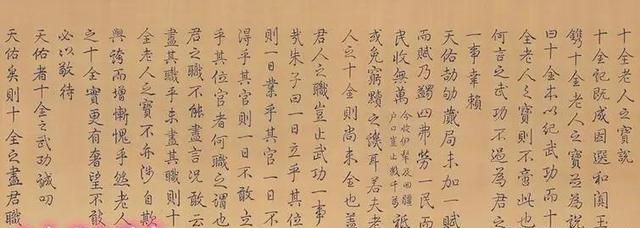 十全老人之寶說
十全記既成因選和闐玉
鐫十全老人之寶並為說
曰十全本以紀武功而十
全老人之寶則不啻此也
何言之武功不過為君之
一事幸賴
天佑劬蕆局未加一賦
而賦乃蠲四弗勞一民而
民收無萬今收伊犂及回疆户口豈止數千萬祗
或免窮黷之譏耳若夫老
人之十全則尚未全也蓋
君人之職豈止武功一事
哉朱子曰一日立乎其位
則一日業乎其官一日不
得乎其官則一日不敢立
乎其位官者何職之謂也
君之職不能盡言況敢云
盡其職乎未盡其職則十
全老人之寶不亦涉自欺
與誇而增慚愧乎然老人
之十全實更有奢望不敢
必以敬待
天佑者十全之武功誠叨
天佑矣則十全之盡君職